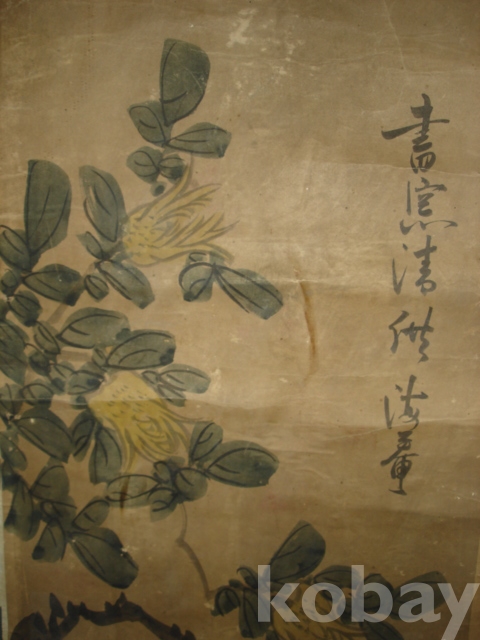 書窓清供 海
kobay